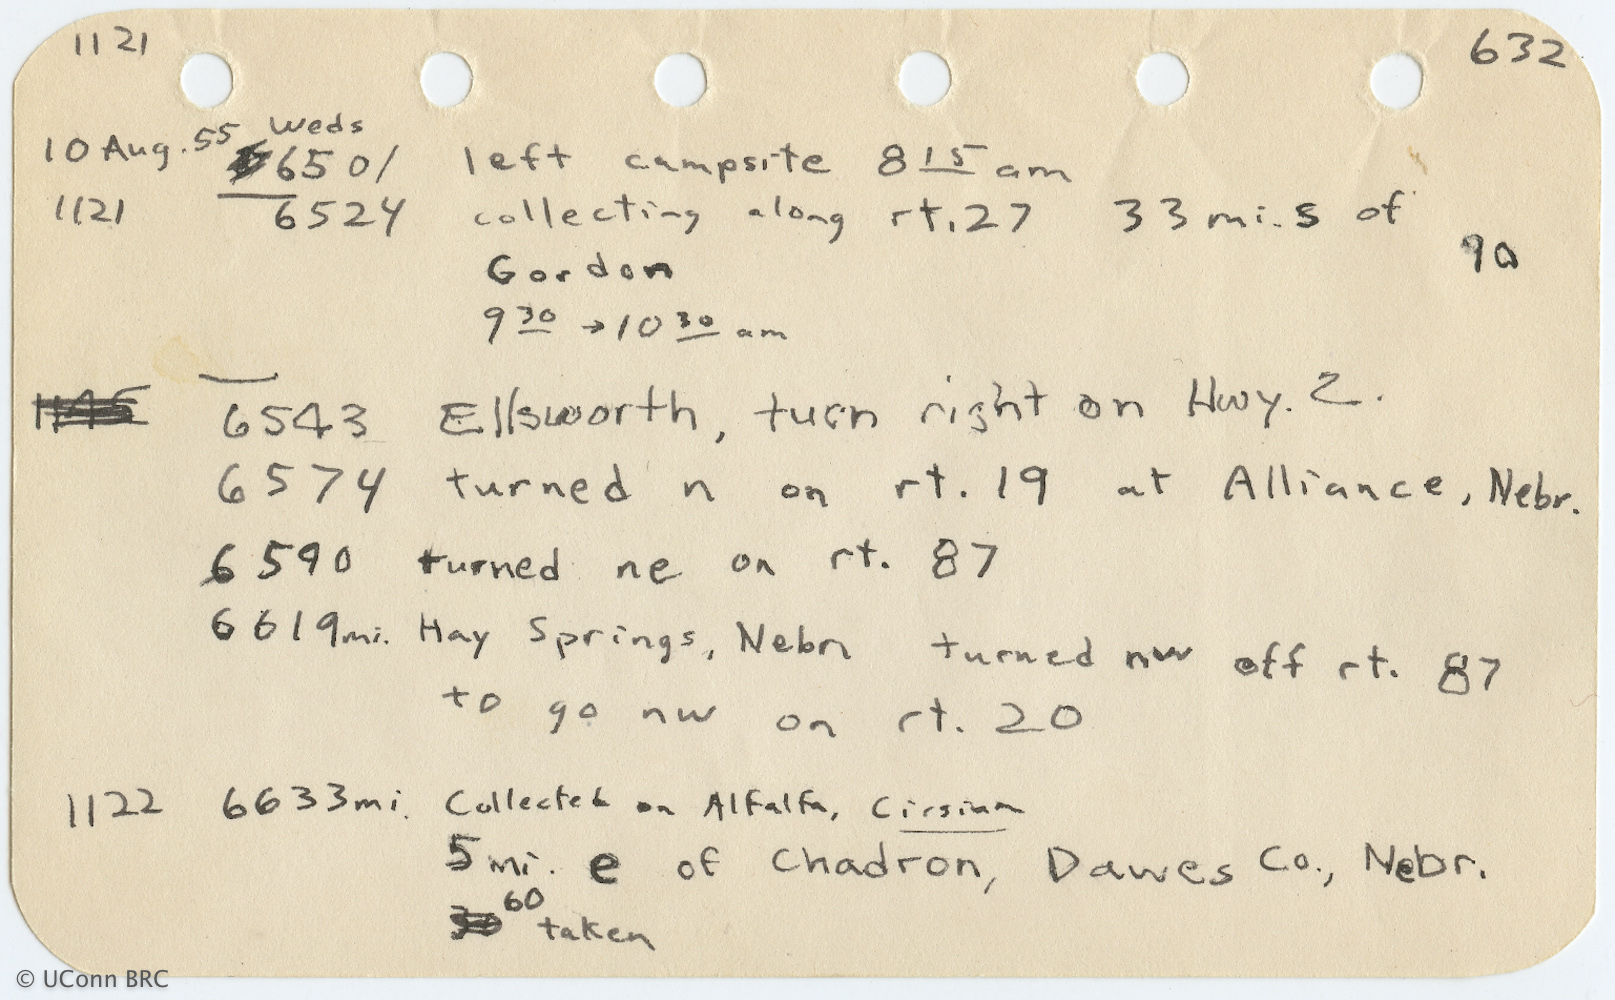 1121 632
10 Aug. 55 Weds 6501 left campsite 8 15 am
1121 6524 collecting along rt. 27 33 mi. s of
Gordon 90
9 30 → 10 30 am
6543 Ellsworth, turn right on Hwy. 2.
6574 turned n on rt. 19 at Alliance, Nebr.
6590 turned ne on rt. 87
6619 mi. Hay Springs, Nebr turned nw off rt. 87
to go nw on rt. 20
1122 6633 mi. Collected on Alfalfa, Cirsium
5 mi. e of Chadron, Dawes Co., Nebr.
60 taken
© UConn BRC